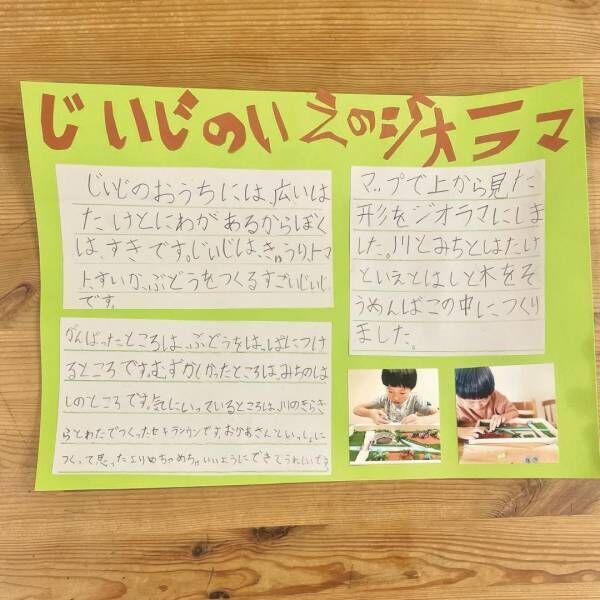 じいじのいえのジオラマ
じいじのおうちには、広いは
たけとにわがあるからぼく
は、すきです。じいじは、きゅうり、トマ
ト、すいか、ぶどうをつくるすごいじいじ
です。
マップで上から見た
形をジオラマにしま
した。川とみちとはたけ
といえとはしと木をそ
うめんばこの中につくり
ました。
がんばったところは、ぶどうをは、ぱにつけ
るところです。むずかしかったところは、みちのは
しのところです。気にいっているところは、川のきらき
らとわたでつくったセキランウンです。おかあさんといっしょに
つくって思ったよりめちゃめちゃいいようにできてうれしいです